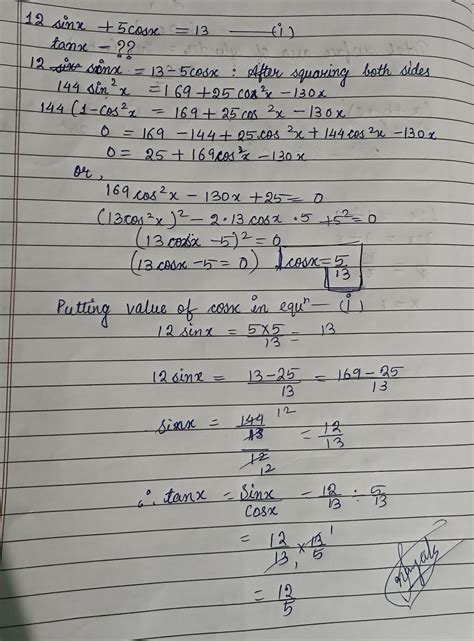 12 sinx + 5cosx = 13 —— (i)
tanx - ??
12 sinx = 13 - 5cosx : After squaring both sides
144 sin²x = 169 + 25 cos²x - 130x
144 (1 - cos²x = 169 + 25 cos²x - 130x
0 = 169 - 144 + 25 cos²x + 144cos²x - 130x
0 = 25 + 169cos²x - 130x
or,
169 cos²x - 130x + 25 = 0
(13cos²x)² - 2·13cosx · 5 + 5² = 0
(13 cosx - 5)² = 0
(13 cosx - 5 = 0) cosx = 5/13
Putting value of cosx in equⁿ — (i)
12 sinx = 5×5/13 = 13
12 sinx = 13 - 25/13 = 169 - 25/13
sinx = 144/13/12 12 12 = 12/13
∴ tanx = Sinx/cosx = 12/13 ÷ 5/13
= 12/13, × 13/5 1
= 12/5